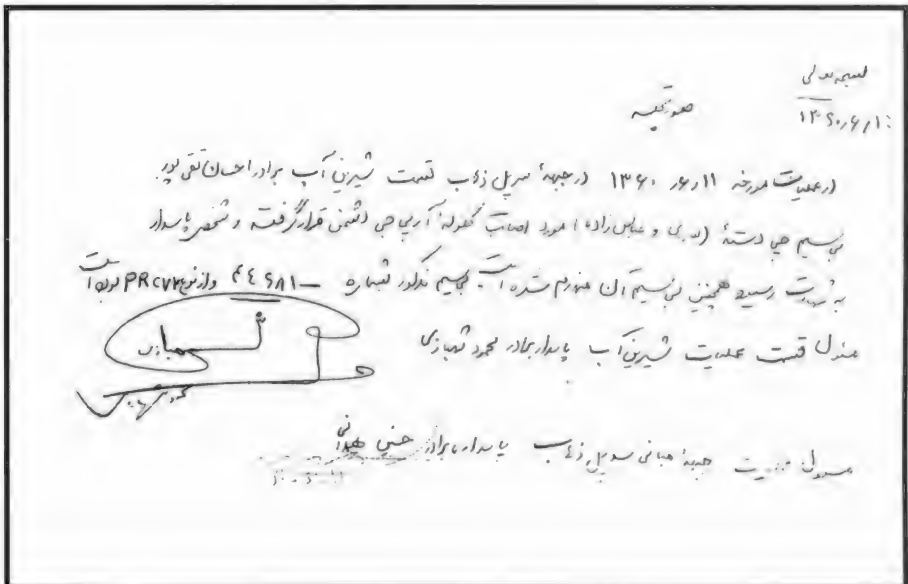 بسمه تعالی
۱۳۶۰/۶/۱
صورتجلسه
در عملیات مورخه ۱۳۶۰/۶/۱۱ در جبههٔ سرپل ذهاب قسمت شیرین آب برادر احسان تقی پور
بی سیم چی دستهٔ ( و عباس زاده ) مورد اصابت گلولهٔ آرپی جی دشمن قرار گرفته و شخص پاسدار
به شهادت رسید همچنین بی سیم آن منهدم شده است بیسیم مذکور شماره و از نوع PRC۷۷ بوده است
مسئول قسمت عملیات شیرین آب پاسدار برادر محمود شهبازی
شهبازی
مسئول جبههٔ میانی سرپل ذهاب پاسدار برادر حسین همدانی